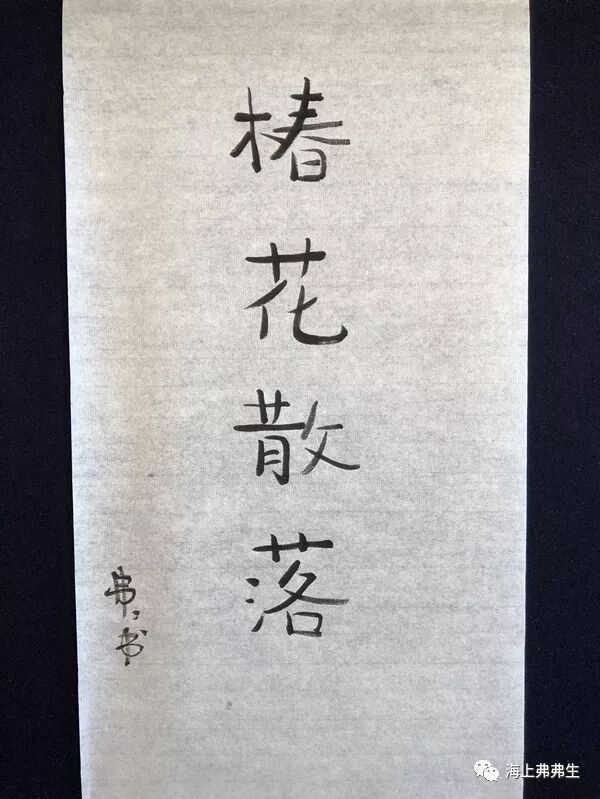 椿花散落
弗〻书
海上弗弗生